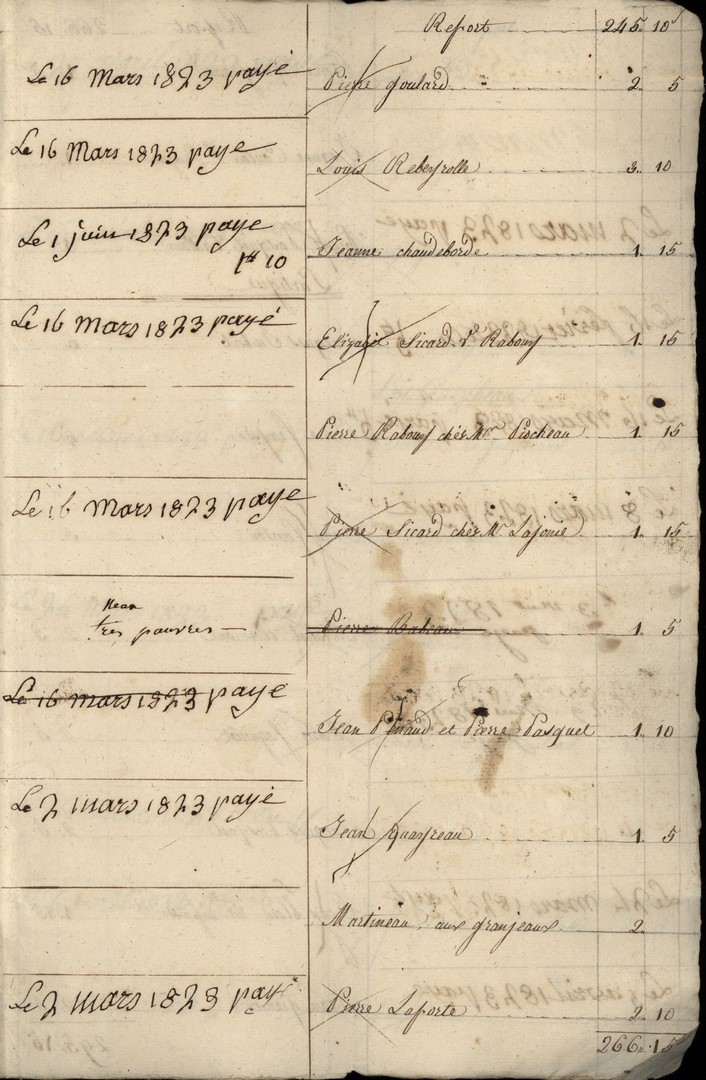 Report 245. 10
Le 16 Mars 1823 payé Pierre Goulard 2. 5
Le 16 Mars 1823 paye Louis Rebeyrolle 3. 10
Le 1 juin 1823 paye Jeanne chaudeborde 1. 15
1# 10
Le 16 Mars 1823 payé Sicard Vᵉ Rabouy 1. 15
Pierre Rabouy chés Mr Piocheau 1. 15
Le 16 Mars 1823 paye Pierre Sicard chés Mr Lajonie 1. 15
Nean
tres pauvres Pierre Rabeau 1. 5
Le 16 mars 1823 payé
Jean Penaud et Pierre Pasquet 1. 10
Le 2 mars 1823 payé Jean 1. 5
Martineau aux granjeaux 2.
Le 2 mars 1823 payé Pierre Laporte 2. 10
266. 15